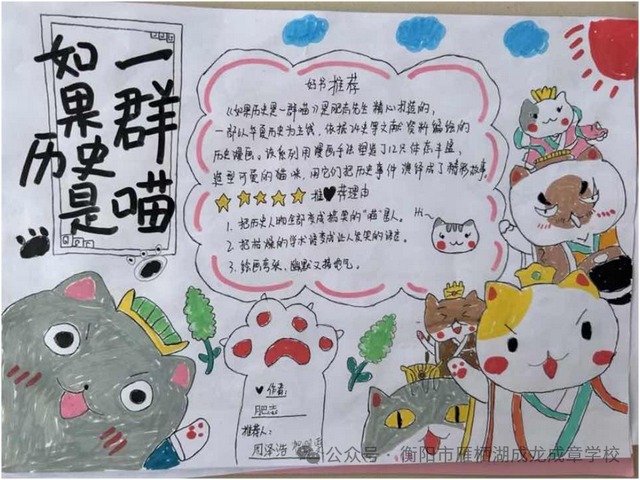 如果历史是
一群喵
好书推荐
《如果历史是一群喵》是肥志先生精心打造的,
一部以华夏历史为主线,依据诸史等文献资料编绘的
历史漫画。该系列用漫画手法塑造了12只体态丰盈,
造型可爱的猫咪,用它们把历史事件演绎成了精彩故事。
推荐理由
1. 把历史人物全部变成搞笑的"喵"星人。
2. 把枯燥的学术语变成让人发笑的语言。
3. 绘画夸张、幽默又接地气。
Hi~
作者:
肥志
推荐人:
周泽浩
公众号 · 衡阳市雁栖湖成龙成章学校